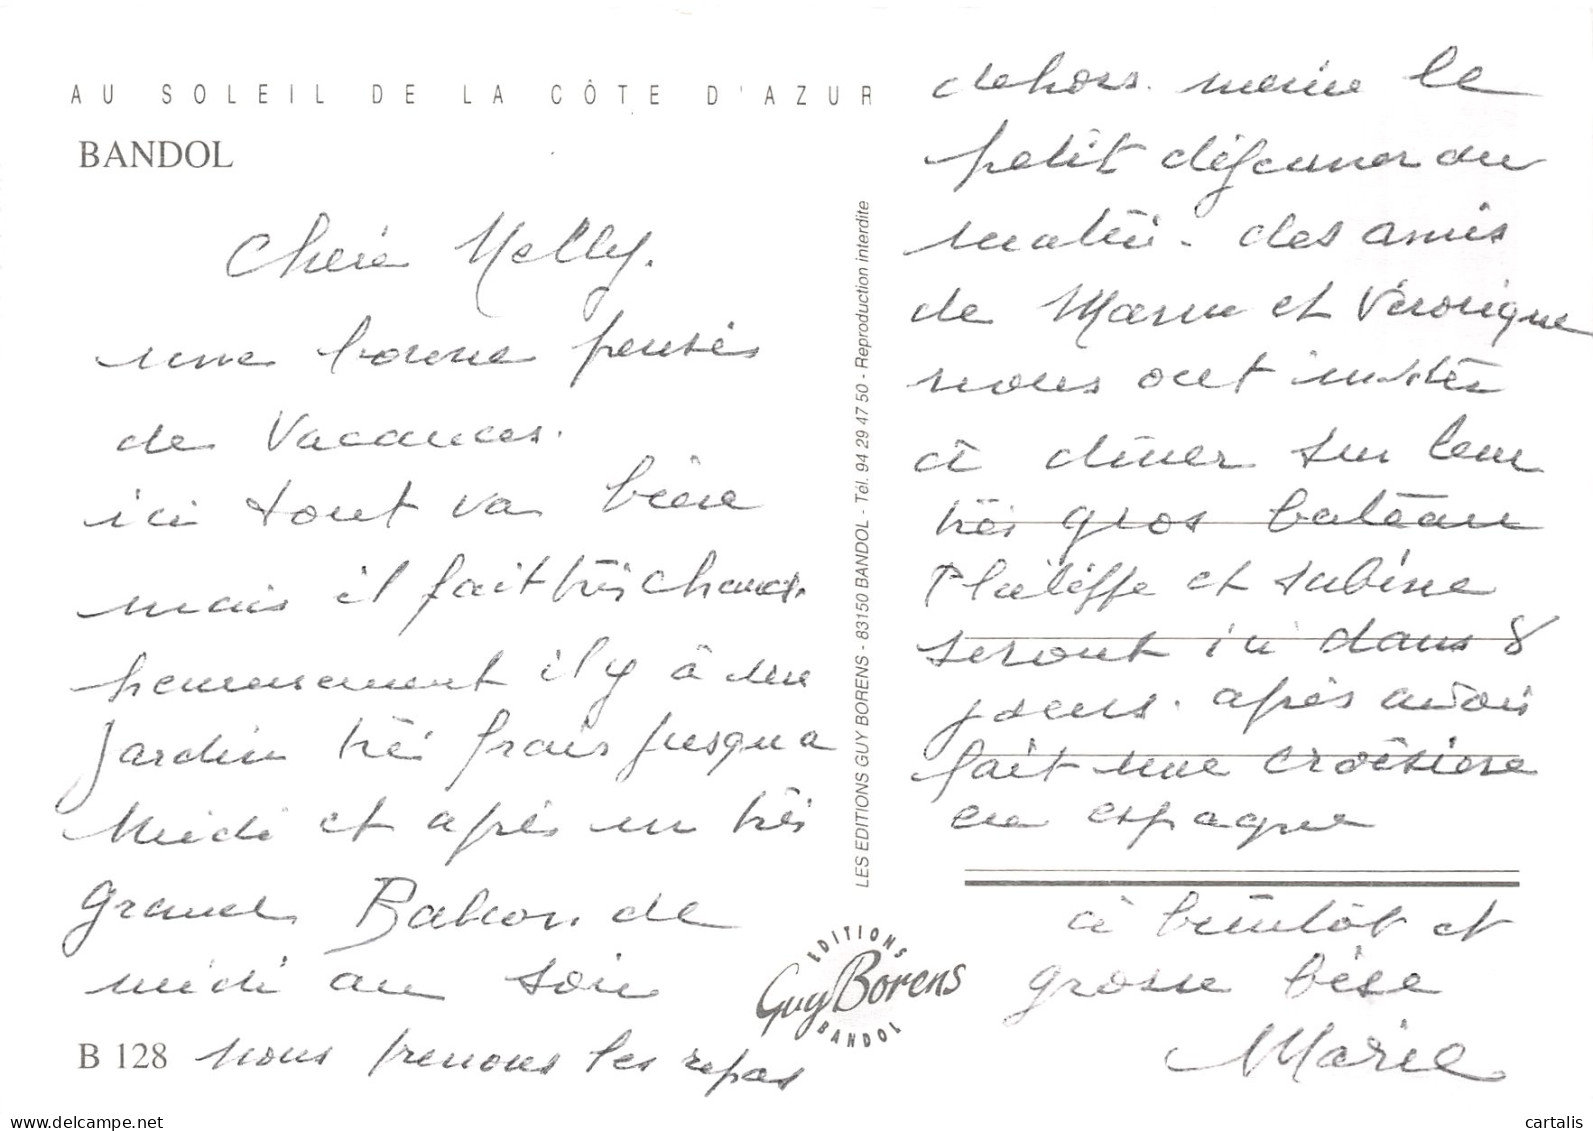 AU SOLEIL DE LA CÔTE D'AZUR
BANDOL
Chère Nelly.
une bonne pensée
de Vacances.
ici tout va bien
mais il fait très chaud.
heureusement il y à un
jardin très frais jusqua
Midi et après un très
grand Balcon de
midi au soir
B 128 nous prenons les repas
dehors. même le
petit déjeuner du
matin. des amis
de et Véronique
nous ont invités
à dîner sur leur
très gros bateau
Philippe et Sabine
seront ici dans 8
jours. après avoir
fait une croisière
en espagne
à bientôt et
grosse bise
Marie
LES EDITIONS GUY BORENS - 83150 BANDOL - Tél. 94 29 47 50 - Reproduction interdite
EDITIONS
Guy Borens
BANDOL
delcampe.net
cartalis